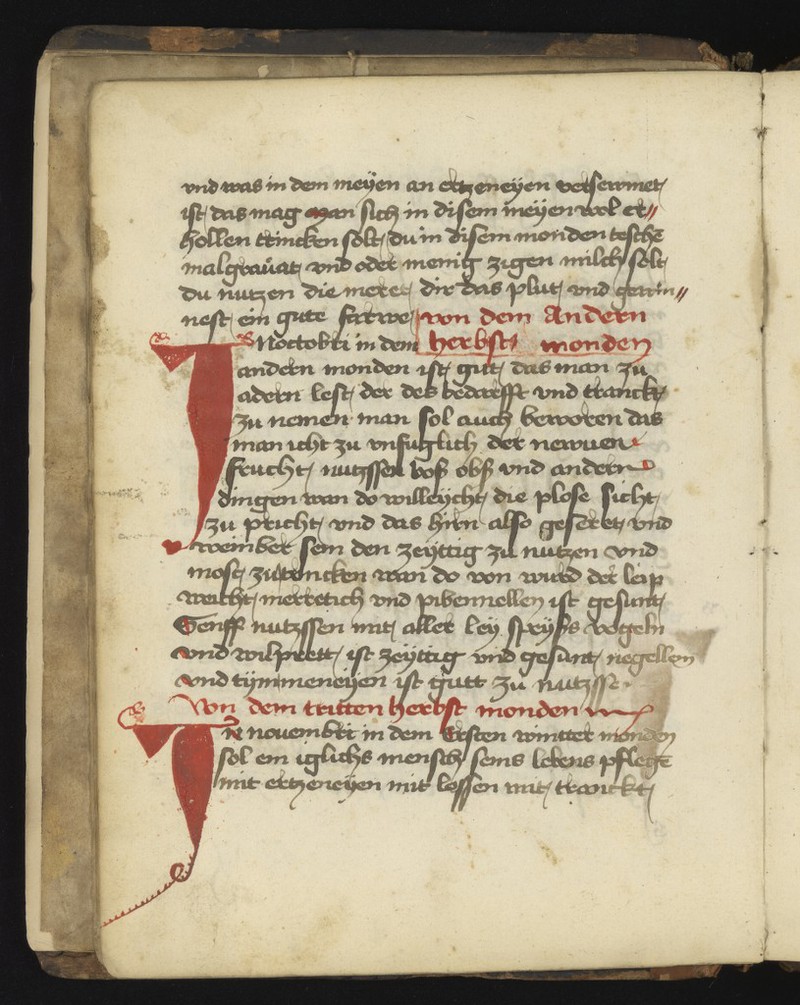 vnd was in dem meÿen an ertzeneÿen versewmet
ist das mag man sich in disem meÿen wol er⸗
hollen trincken solt du in disem monden tesche
malgrauat vnd oder menig zigen milch solt
du nutzen die meret dir das plut vnd gewin⸗
nest ein gute farwe von dem Andern
herbst monden
IN octobri in dem
andern monden ist gut das man zu
adern lest der des bedarfft vnd tranck
zu nemen man sol auch beworen das
man icht zu vnfuglich der newen
frucht nutzssen boß obß vnd andern
dingen wan do willeÿcht die plose sicht
zu pricht vnd das hirn also geseret vnd
weinber sein den zeÿttig zu nutzen vnd
most zu trincken wan do von wurd der leip
weicht merretich vnd pibennellen ist gesunt
Senff nutzssen mit aller leÿ speÿß vogeln
vnd wilprett ist zeÿttig vnd gesunt negellein
vnd tÿmmeneÿen ist gutt zu nutzsse
Von dem tritten herbst monden
IN nouembri in dem Ersten wintter monden
sol ein iglichs mensch seins lebens pflege
mit ertzeneÿen mit lossen mit tranckt